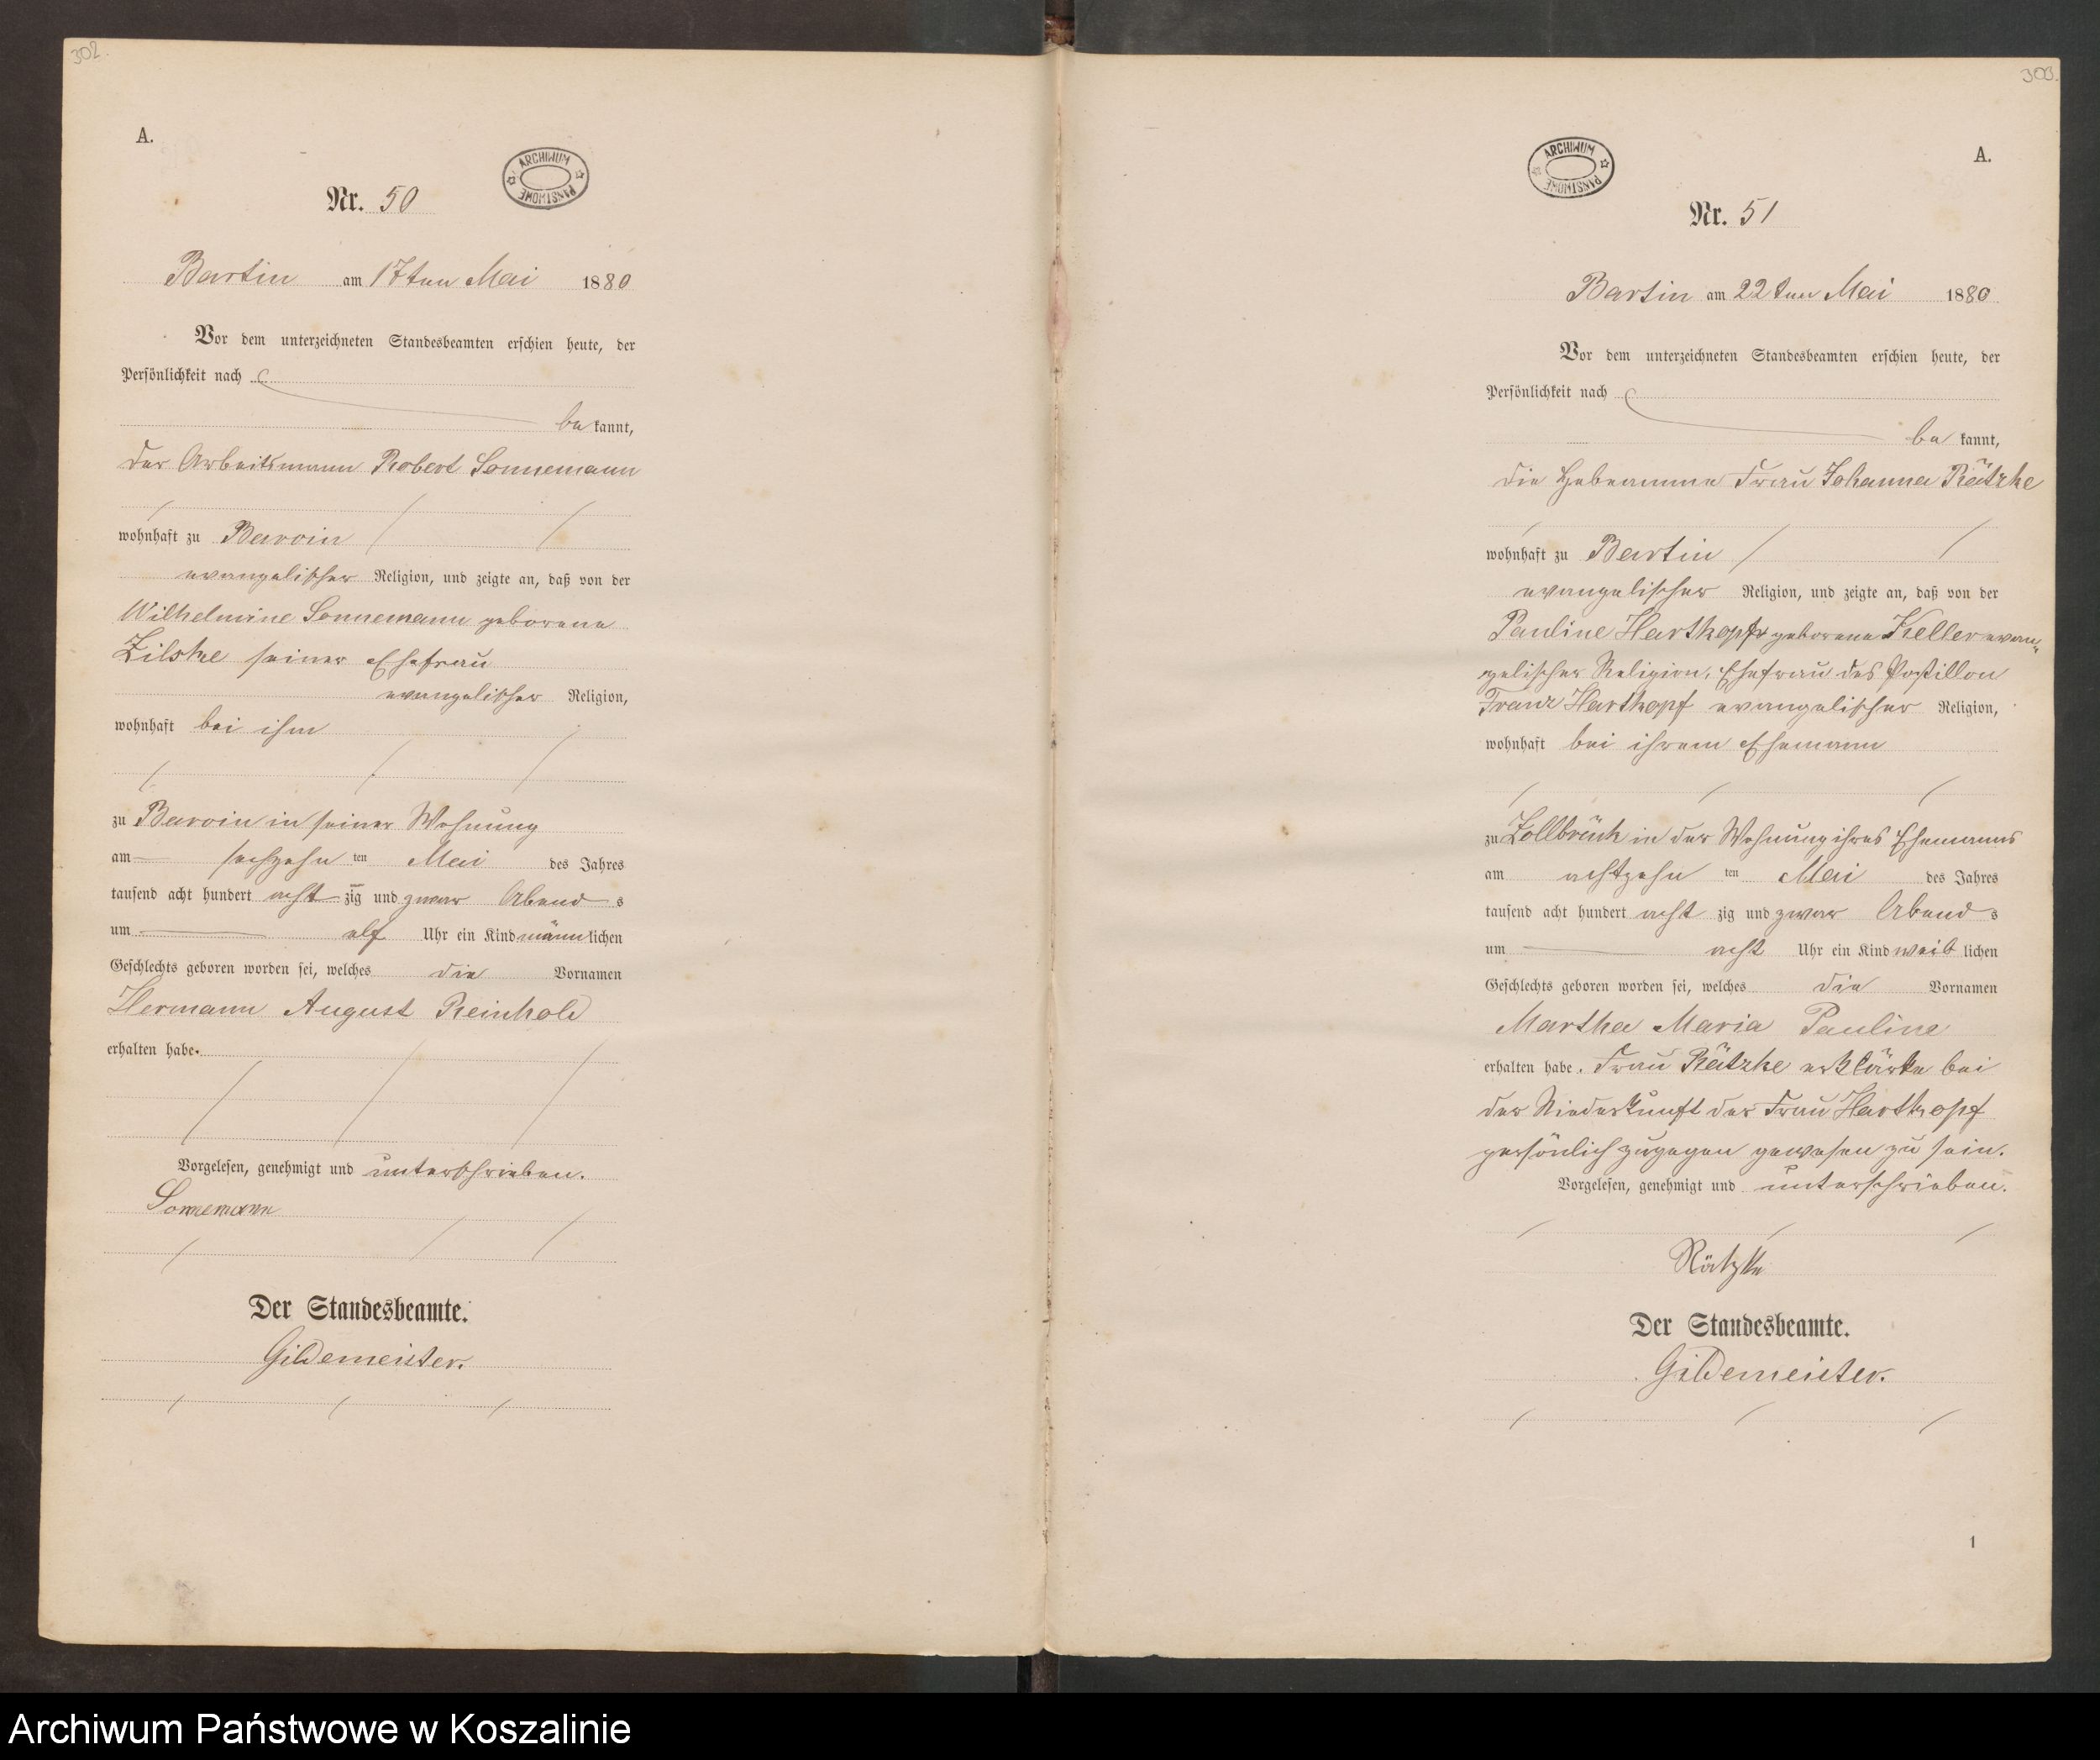 302.
A.
ARCHIWUM PAŃSTWOWE
Nr. 50
Bartin am 17ten Mai 1880
Vor dem unterzeichneten Standesbeamten erschien heute, der
Persönlichkeit nach
bekannt,
der Arbeitsmann Robert Sonnemann
wohnhaft zu Barvin
evangelischer Religion, und zeigte an, daß von der
Wilhelmine Sonnemann geborene
Zilske seiner Ehefrau
evangelischer Religion,
wohnhaft bei ihm
zu Barvin in seiner Wohnung
am sechzehnten Mai des Jahres
tausend acht hundert achtzig und zwar Abends
um elf Uhr ein Kind männlichen
Geschlechts geboren worden sei, welches die Vornamen
Hermann August Reinhold
erhalten habe.
Vorgelesen, genehmigt und unterschrieben.
Sonnemann
Der Standesbeamte.
Gildemeister.
303.
A.
ARCHIWUM PAŃSTWOWE
Nr. 51
Bartin am 22ten Mai 1880
Vor dem unterzeichneten Standesbeamten erschien heute, der
Persönlichkeit nach
bekannt,
die Hebeamme Frau Johanna Rätzke
wohnhaft zu Bartin
evangelischer Religion, und zeigte an, daß von der
Pauline Harthopf geborene Keller evan-
gelischer Religion, Ehefrau des Postillon
Franz Harthopf evangelischer Religion,
wohnhaft bei ihrem Ehemann
zu Zollbrück in der Wohnung ihres Ehemanns
am achtzehnten Mai des Jahres
tausend acht hundert achtzig und zwar Abends
um acht Uhr ein Kind weiblichen
Geschlechts geboren worden sei, welches die Vornamen
Martha Maria Pauline
erhalten habe. Frau Rätzke erklärte bei
der Niederkunft der Frau Harthopf
persönlich zugegen gewesen zu sein.
Vorgelesen, genehmigt und unterschrieben.
Rätzke
Der Standesbeamte.
Gildemeister.
1
Archiwum Państwowe w Koszalinie